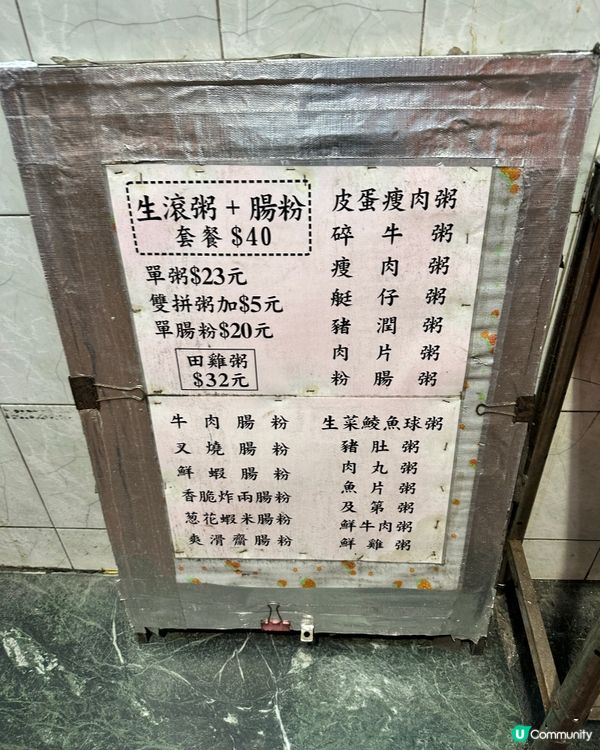 生滾粥+腸粉
套餐$40
單粥$23元
雙拼粥加$5元
單腸粉$20元
田雞粥
$32元
皮蛋瘦肉粥
碎牛粥
瘦肉粥
艇仔粥
豬潤粥
肉片粥
粉腸粥
牛肉腸粉
叉燒腸粉
鮮蝦腸粉
香脆炸兩腸粉
葱花蝦米腸粉
爽滑齋腸粉
生菜鯪魚球粥
豬肚粥
肉丸粥
魚片粥
及第粥
鮮牛肉粥
鮮雞粥
U Community